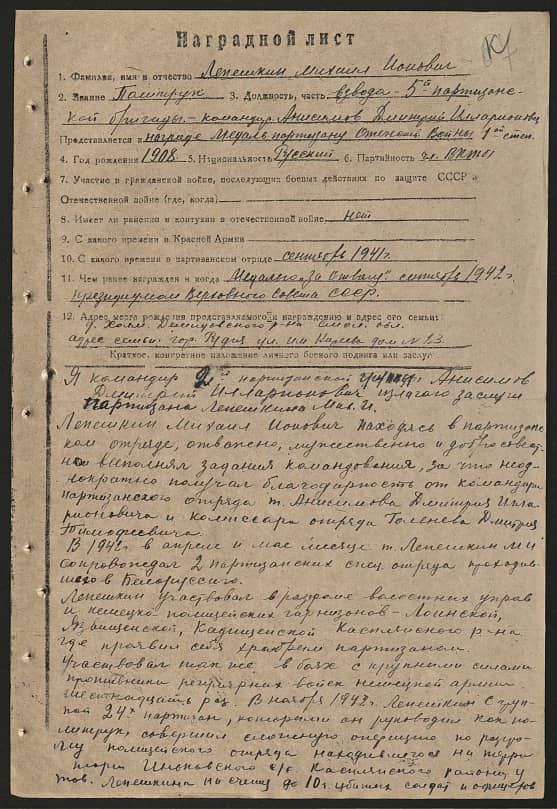 Наградной лист
1. Фамилия, имя и отчество Лепешкин Михаил Ионович
2. Звание Политрук 3. Должность, часть взвода - 5й партизанс-
кой бригады - командир Анисимов Дмитрий Илларионович
Представляется к награде Медаль партизану Отечеств Войны 1ой степ.
4. Год рождения 1908 5. Национальность Русский 6. Партийность чл. ВКП(б)
7. Участие в гражданской войне, последующих боевых действиях по защите СССР и
Отечественной войне (где, когда)
8. Имеет ли ранения и контузии в отечественной войне нет
9. С какого времени в Красной Армии
10. С какого времени в партизанском отряде сентябрь 1941г.
11. Чем ранее награжден и когда Медалью "За отвагу" сентябрь 1942г.
Президиумом Верховного Совета СССР.
12. Адрес места рождения представляемого к награждению и адрес его семьи:
д. Холм. Демидовского р-на Смол. обл.
адрес семьи: гор. Рудня ул. им Кирова дом N 23
Краткое, конкретное изложение личного боевого подвига или заслуг
Я командир 2й партизанской Анисимов
Дмитрий Илларионович излагаю заслуги
партизана Лепешкина Мих. И.
Лепешкин Михаил Ионович находясь в партизанс-
ком отряде, отважно, мужественно и добросовест-
но выполнял задания командования, за что неод-
нократно получал благодарность от командира
партизанского отряда т. Анисимова Дмитрия Илла-
рионовича и комиссара отряда Дмитрия
Тимофеевича.
В 1942г в апреле и мае месяце т. Лепешкин М И
сопровождал 2 партизанских спец. отряда проходив-
шего в Белоруссию.
Лепешкин участвовал в разгроме волостных управ
и немецко-полицейских гарнизонов - Лоинской,
Язвищенской, Кадищенской Касплянского р-на
где проявил себя храбрым партизаном.
Участвовал так же в боях с крупными силами
противника регулярных войск немецкой армии
шестнадцать раз. В ноябре 1942г. Лепешкин с груп-
пой 24х партизан, которыми он руководил как по-
литрук, совершил сложную операцию по разгро-
му полицейского отряда находившегося на терри-
тории с/с Касплянского района, у
тов. Лепешкина на счету до 10 убитых солдат и офицеров